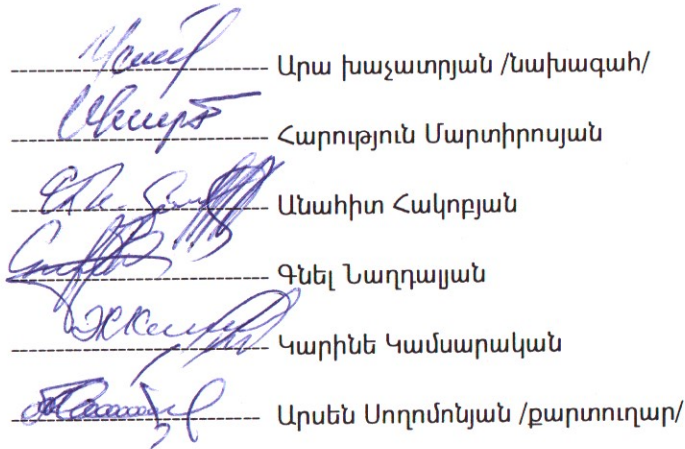 Արա խաչատրյան /նախագահ/
Հարություն Մարտիրոսյան
Անահիտ Հակոբյան
Գնել Նաղդալյան
Կարինե Կամսարական
Արսեն Սողոմոնյան /քարտուղար/